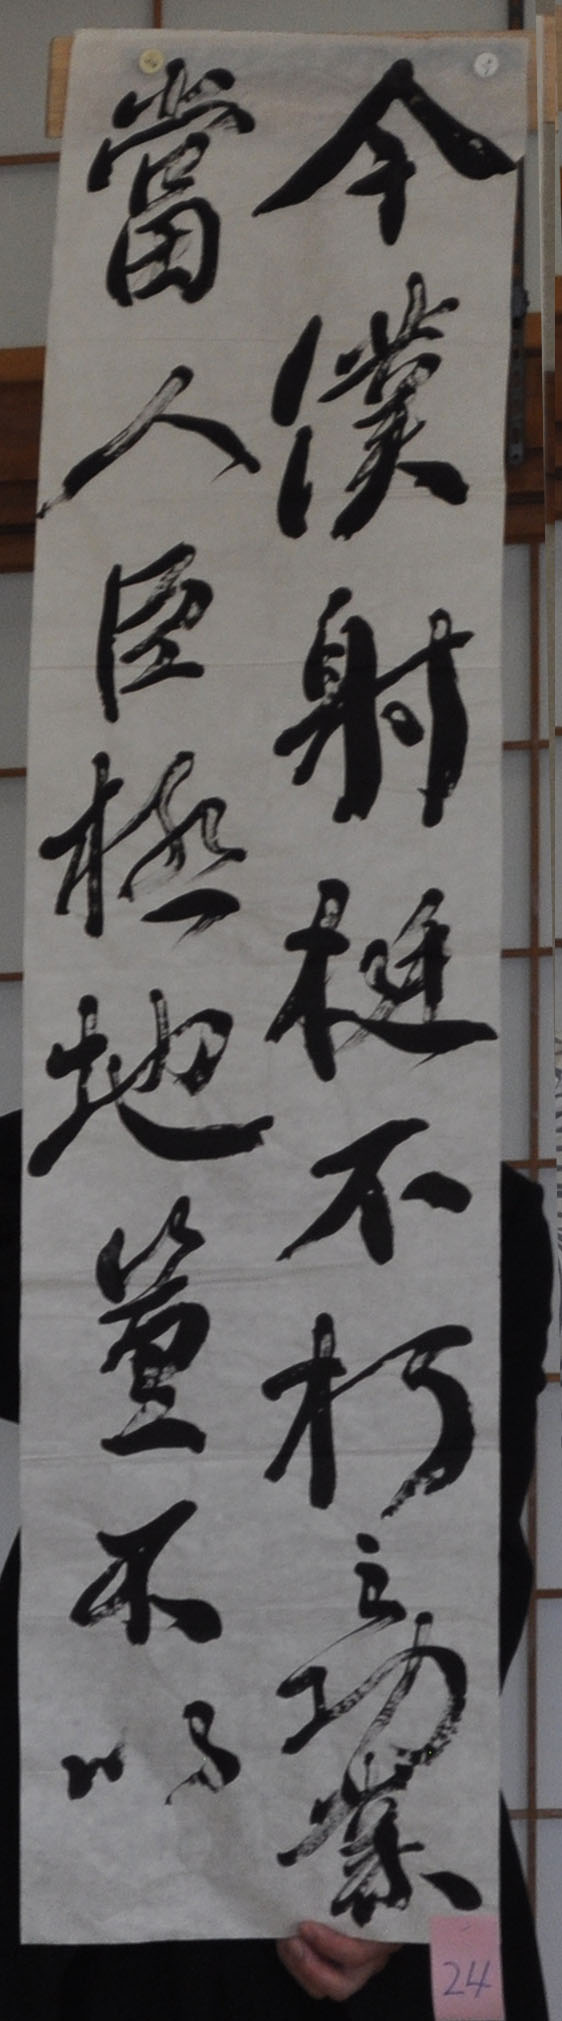 今僕射挺不朽之功業
當人臣極地豈不以
24